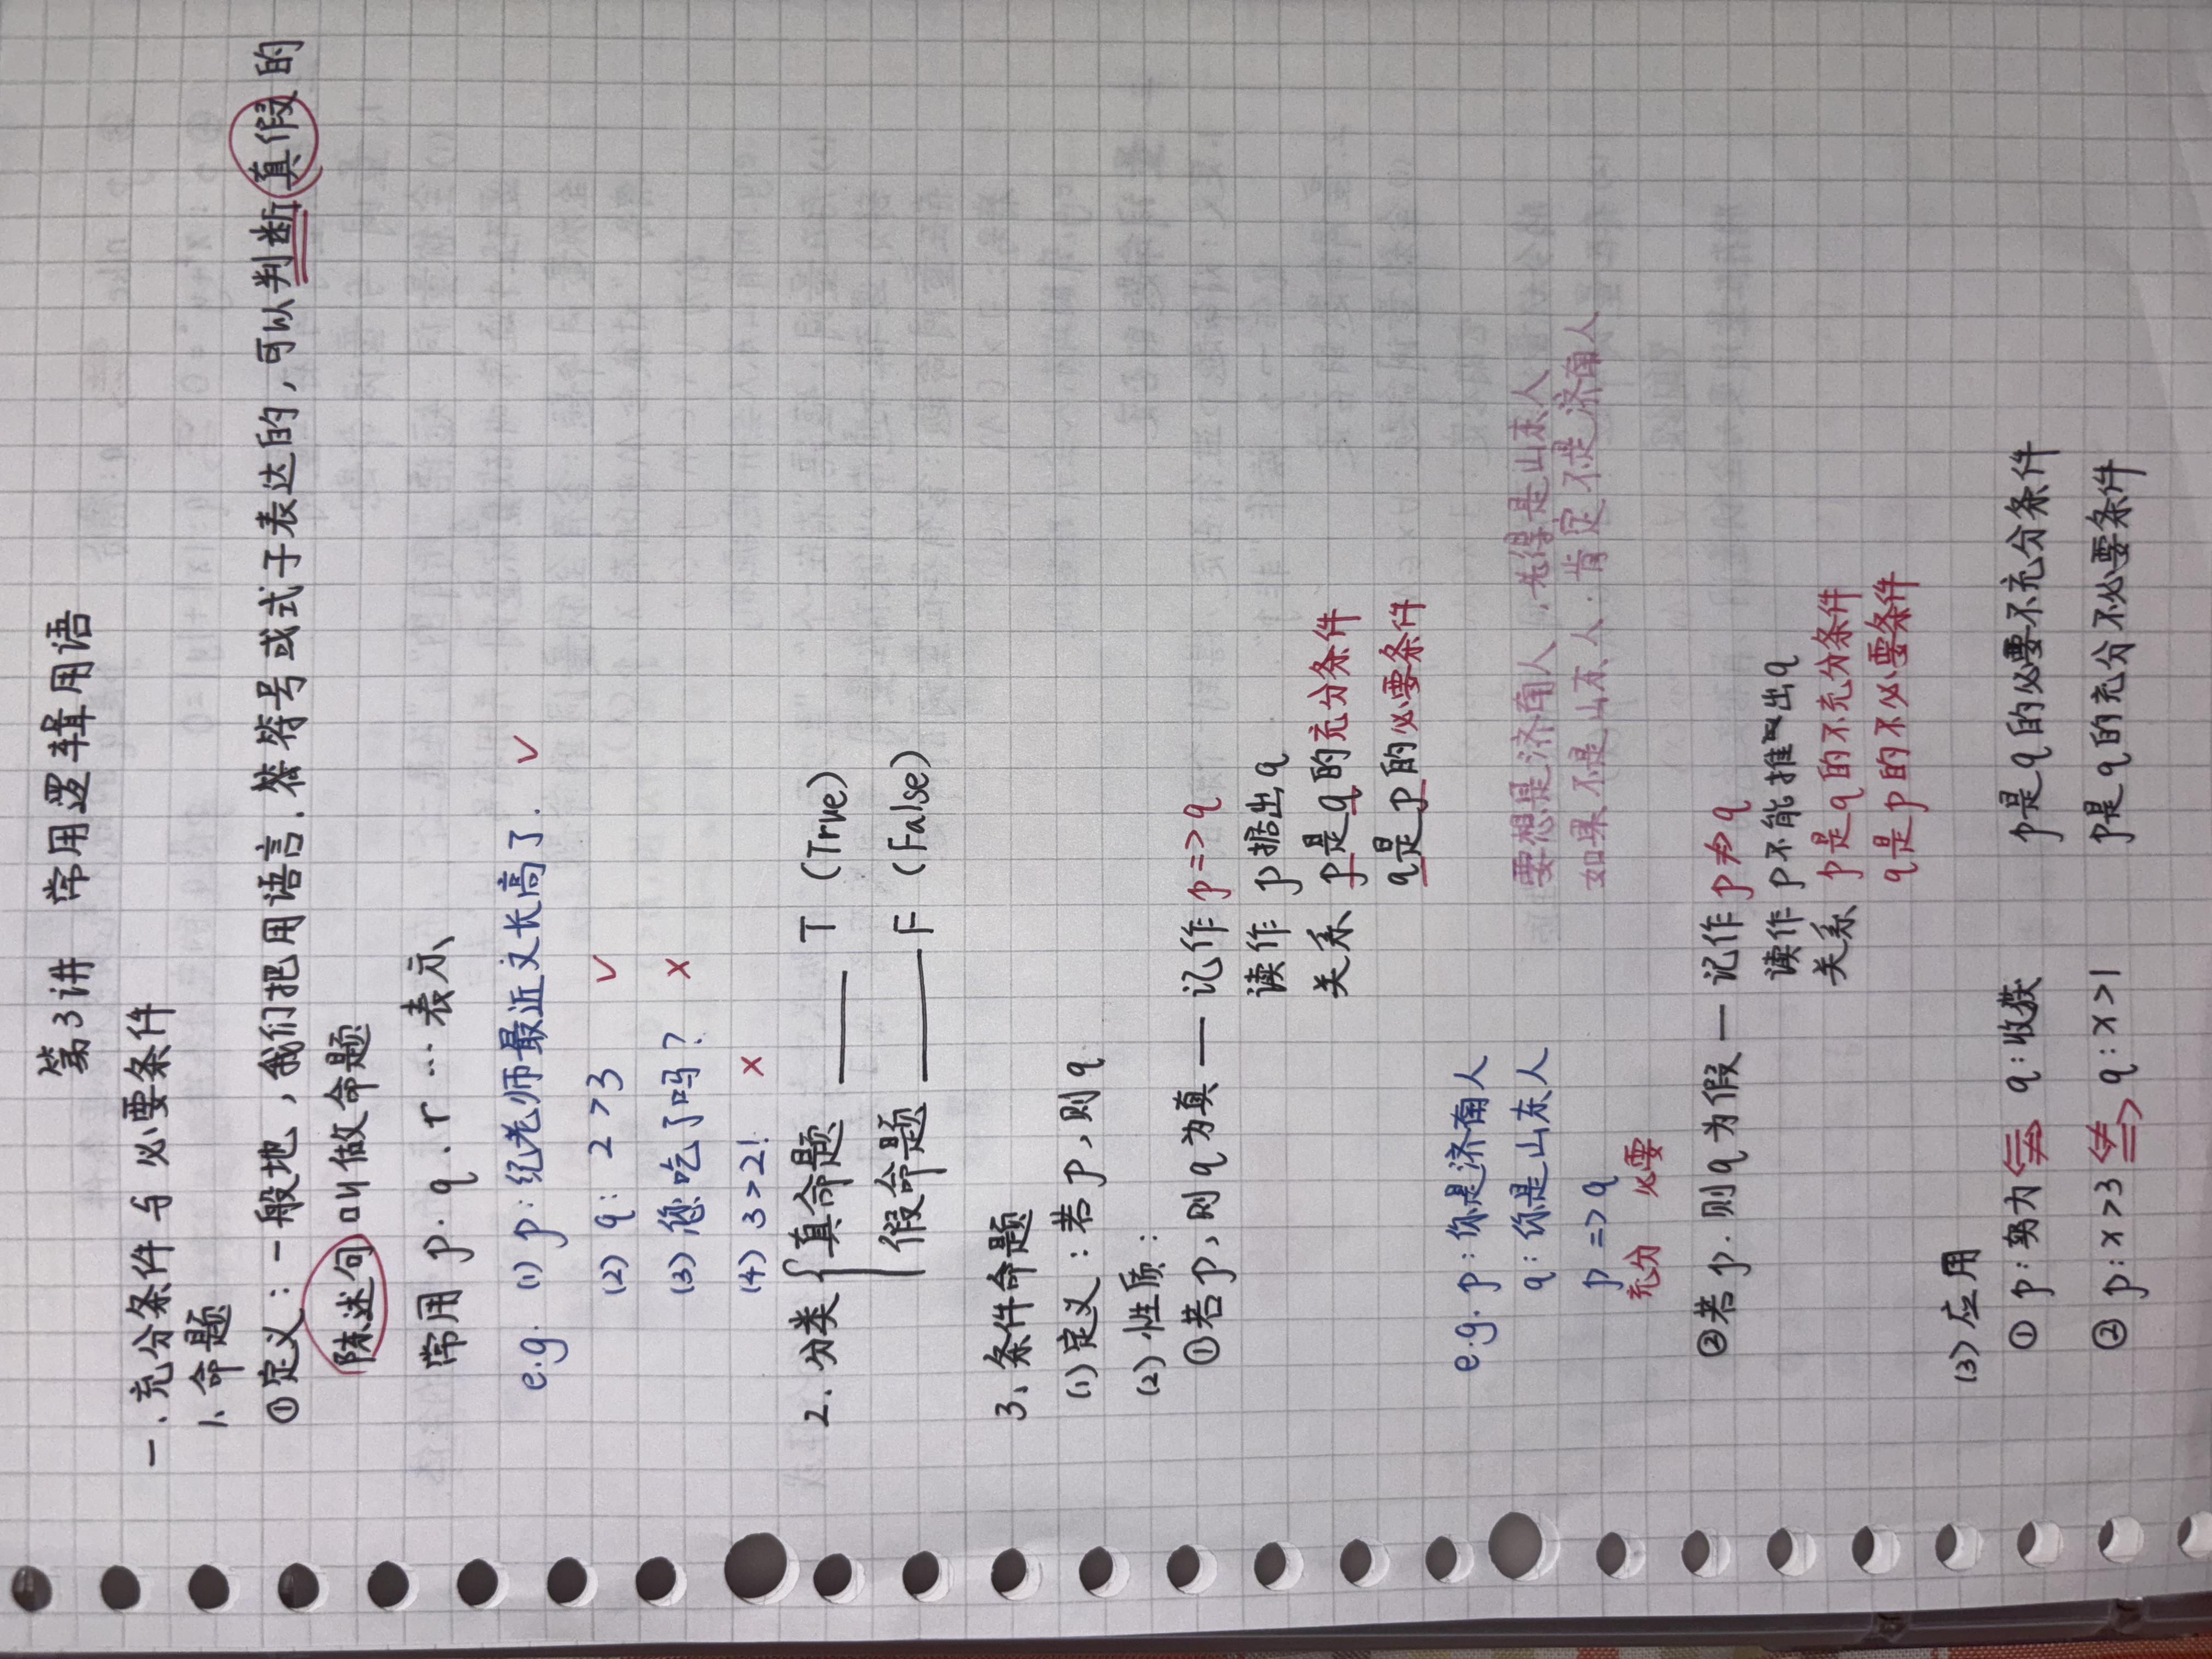 第3讲 常用逻辑用语
一.充分条件与必要条件
1、命题
①定义:一般地,我们把用语言.符号或式子表达的,可以判断真假的
陈述句叫做命题
常用 p. q. r … 表示
e.g. (1) p:纪老师最近又长高了. ✓
(2) q: 2>3 ✓
(3) 您吃了吗? ×
(4) 3>2! ×
2.分类 { 真命题 —— T (True)
假命题 —— F (False)
3、条件命题
(1)定义:若p,则q
(2)性质:
①若p,则q为真 — 记作 p=>q
读作 p推出q
关系 p是q的充分条件
q是p的必要条件
e.g. p:你是济南人
q:你是山东人
p => q
充分 必要
要想是济南人,先得是山东人
如果不是山东人:肯定不是济南人
②若p.则q为假 — 记作 p≠>q
读作 p不能推出q
关系 p是q的不充分条件
q是p的不必要条件
(3)应用
① p:努力 q:收获 p是q的必要不充分条件
② p: x>3 q: x>1 p是q的充分不必要条件